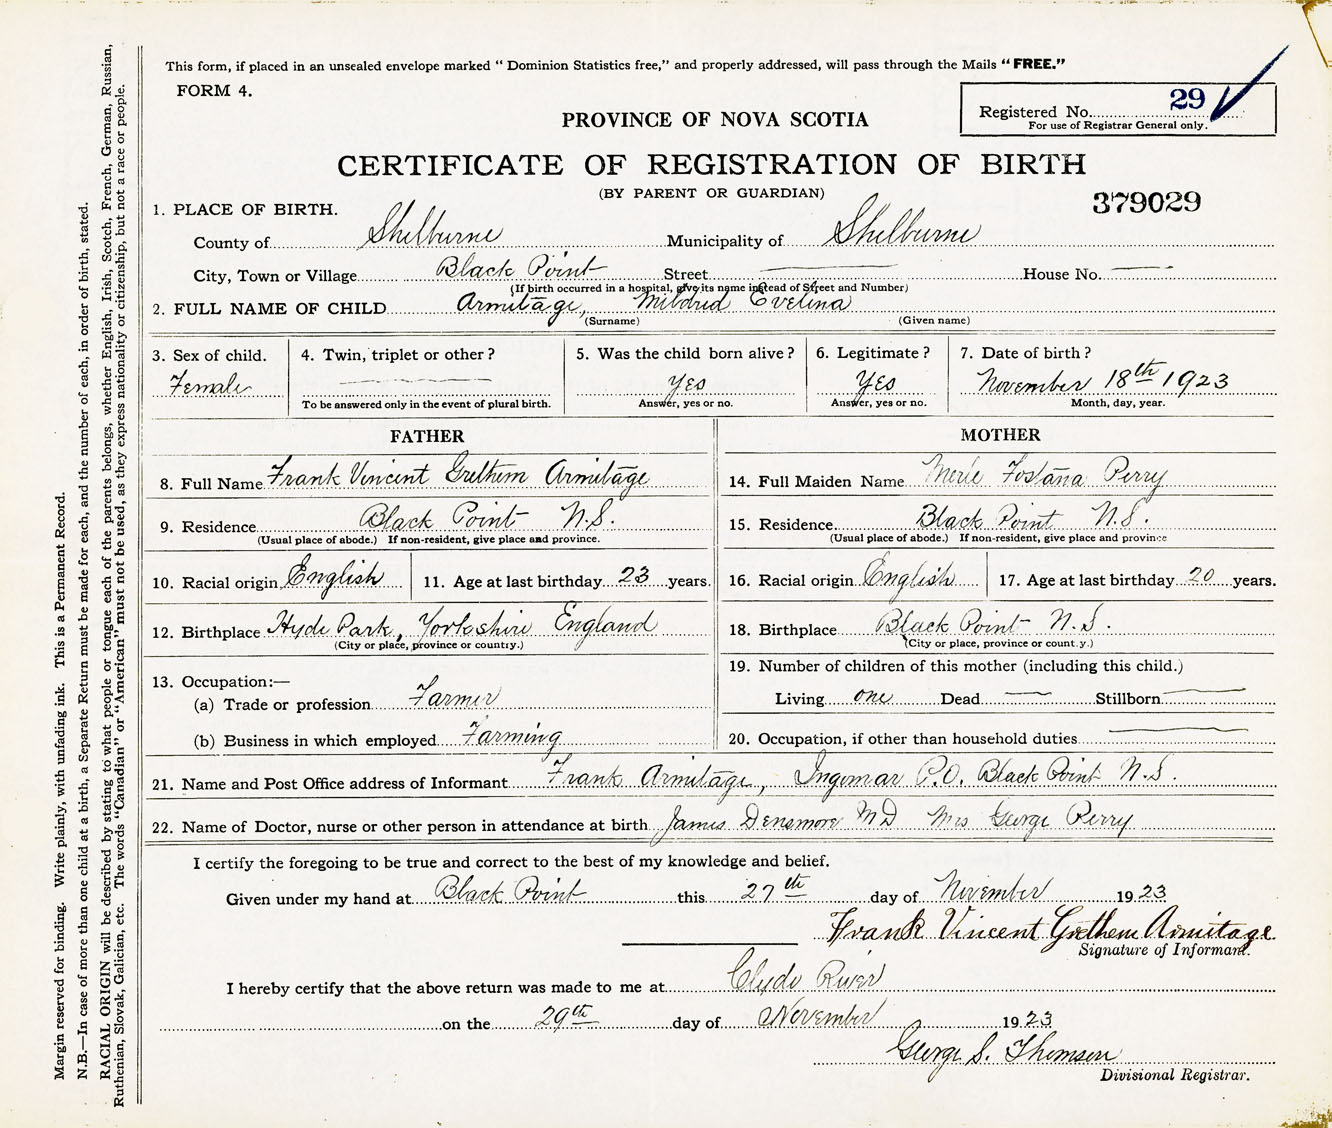 This form, if placed in an unsealed envelope marked " Dominion Statistics free," and properly addressed, will pass through the Mails " FREE."
FORM 4.
Registered No. 29
For use of Registrar General only.
PROVINCE OF NOVA SCOTIA
CERTIFICATE OF REGISTRATION OF BIRTH
(BY PARENT OR GUARDIAN)
379029
1. PLACE OF BIRTH.
County of Shelburne Municipality of Shelburne
City, Town or Village Black Point Street House No.
(If birth occurred in a hospital, give its name instead of Street and Number)
2. FULL NAME OF CHILD Armitage, Mildred Evelina
(Surname) (Given name)
3. Sex of child. 4. Twin, triplet or other ? 5. Was the child born alive ? 6. Legitimate ? 7. Date of birth ?
Female Yes Yes November 18th 1923
To be answered only in the event of plural birth. Answer, yes or no. Answer, yes or no. Month, day, year.
FATHER MOTHER
8. Full Name Frank Vincent Grethem Armitage 14. Full Maiden Name Merle Perry
9. Residence Black Point N.S. 15. Residence Black Point N.S.
(Usual place of abode.) If non-resident, give place and province. (Usual place of abode.) If non-resident, give place and province
10. Racial origin English 11. Age at last birthday 23 years. 16. Racial origin English 17. Age at last birthday 20 years.
12. Birthplace Hyde Park, Yorkshire England 18. Birthplace Black Point N.S.
(City or place, province or country.) (City or place, province or count.y.)
19. Number of children of this mother (including this child.)
13. Occupation:—
(a) Trade or profession Farmer Living one Dead Stillborn
(b) Business in which employed Farming 20. Occupation, if other than household duties
21. Name and Post Office address of Informant Frank Armitage, Ingomar P.O. Black Point N.S.
22. Name of Doctor, nurse or other person in attendance at birth James Densmore MD Mrs George Perry
I certify the foregoing to be true and correct to the best of my knowledge and belief.
Given under my hand at Black Point this 27th day of November 1923
Frank Vincent Grethem Armitage
Signature of Informant.
I hereby certify that the above return was made to me at Clyde River
on the 29th day of November 1923
George S. Thomson
Divisional Registrar.
Margin reserved for binding. Write plainly, with unfading ink. This is a Permanent Record.
N.B.—In case of more than one child at a birth, a Separate Return must be made for each, and the number of each, in order of birth, stated.
RACIAL ORIGIN will be described by stating to what people or tongue each of the parents belongs, whether English, Irish, Scotch, French, German, Russian,
Ruthenian, Slovak, Galician, etc. The words "Canadian" or "American" must not be used, as they express nationality or citizenship, but not a race or people.